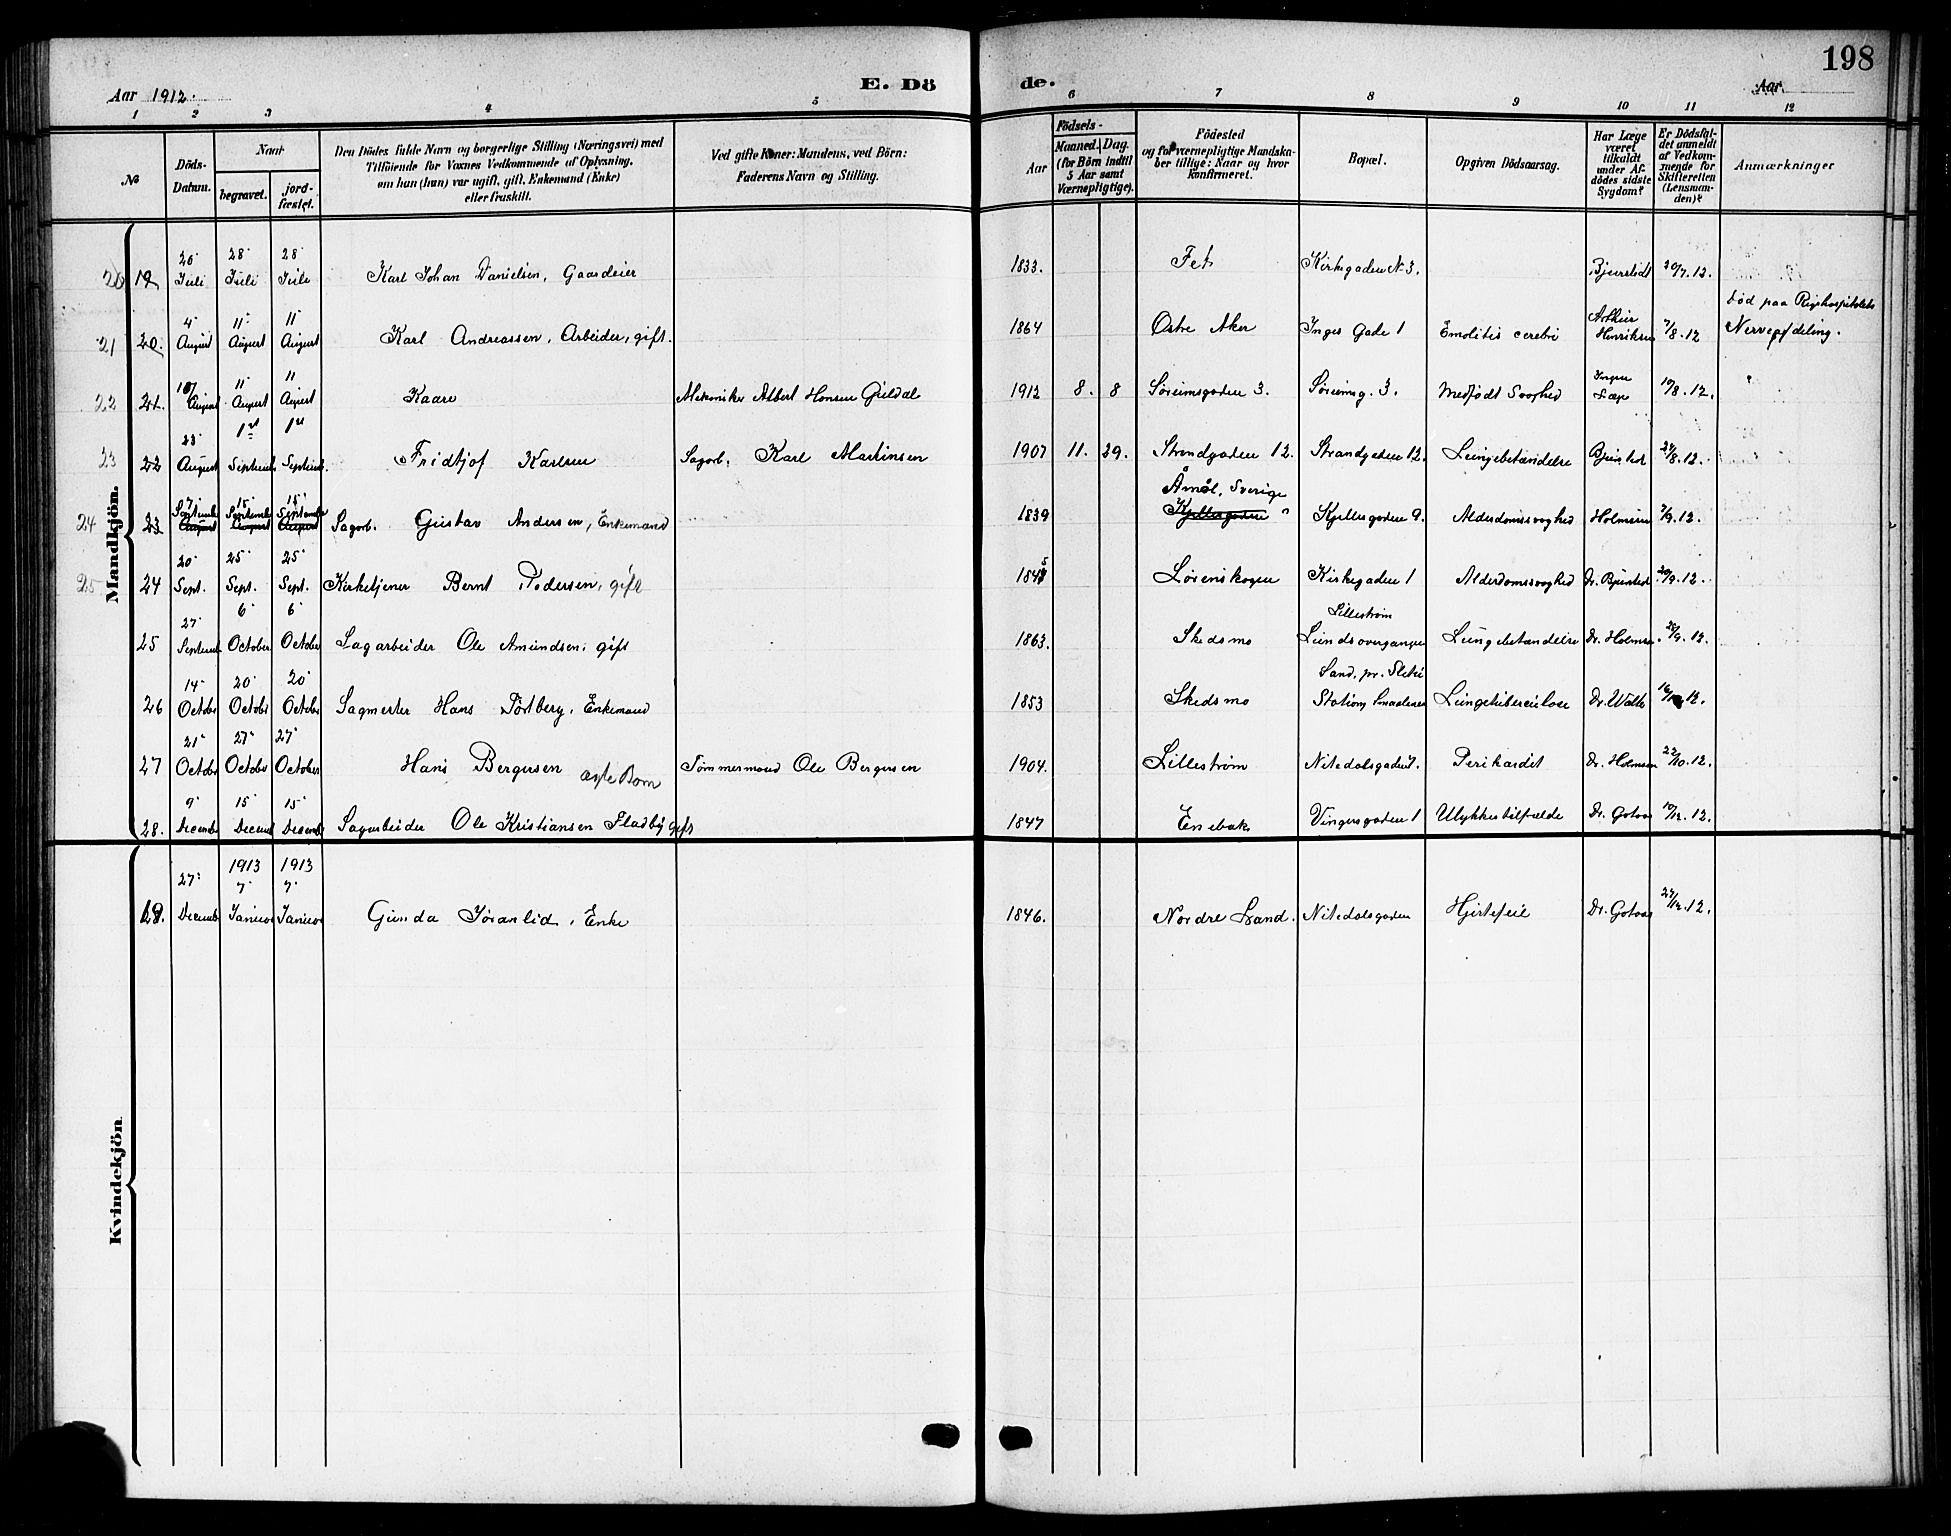 198
Aar 1912.
E. Dö
de.
Aar
1 2 3 4 5 6 7 8 9 10 11 12
№
Döds-
Datum.
Naar
begravet.
jord-
fæstet.
Den Dödes fulde Navn og borgerlige Stilling (Næringsvei) med
Tilföiende for Voxnes Vedkommende af Oplysning,
om hun (han) var ugift, gift, Enkemand (Enke)
eller fraskilt.
Ved gifte Koner: Mandens, ved Börn:
Faderens Navn og Stilling.
Födsels-
Aar
Maaned. Dag.
(for Börn indtil
5 Aar samt
Værnepligtige).
Födested
og for værnepligtige Mandska-
ber tillige: Naar og hvor
konfirmeret.
Bopæl.
Opgiven Dödsaarsag.
Har Læge
været
tilkaldt
under Af-
dödes sidste
Sygdom?
Er Dödsfal-
det anmeldt
af Vedkom-
mende for
Skifteretten
(Lensman-
den)?
Anmærkninger
Mandkjön.
20 19 26 Juli 28 Juli 28 Juli Karl Johan Danielsen, Gaardeier 1833. Fet Kirkegaden N 3. Bjerstedt 20/7.12.
21 20. 4 August 11 August 11 August Karl Andreassen, Arbeider, gift. 1864 Østre Aker Inges Gade 1 Emolitis cerebri Arthur Henriksen 7/8.12 Død paa Rigshospitalets
Nerveafdeling.
22 21. August 11 August 11 August Kaare Mekaniker Albert Hansen Guldal 1912 8. 8 Sørumsgaden 3. Sørumsg. 3. Medfødt Svaghed Ingen Læge 10/8.12.
23 22 23 August 1st Septemb. 1st Septemb. Fridtjof Karlsen Sagarb. Karl Martinsen 1907 11. 29. Strandgaden 12. Strandgaden 12. Lungebetændelse Bjersted 24/8.12.
24 23 7 Septemb August 15 Septemb August 15 Septembr August Sagarb. Gustav Andersen, Enkemand 1839 Åmål, Sverige Kjellergaden Kjellergaden 9. Alderdomssvaghed Holmsen 7/9.12.
25 24 20 Sept. 25 Sept. 25 Sept. Kirketjener Bernt Pedersen, gift 1845 Lørenskogen Kirkegaden 1 Alderdomssvaghed Dr. Bjersted 20/9.12.
25 27 Septemb. 6 October 6 October Sagarbeider Ole Amundsen, gift 1863. Skedsmo Lillestrøm
Lundsovergangen Lungebetændelse Dr. Holmsen 28/9.12.
26 14 Octobr 20 Octobr 20 October Sagmester Hans Tøstberg, Enkemand 1853 Skedsmo Sand, pr.
Station, Lungetuberculose Dr. 16/10.12.
27 21 Octobr 27 October 27 October Hans Bergersen ægte Barn Tømmermand Ole Bergersen 1904. Lillestrøm Nitedalsgaden Perikardit Dr. Holmsen 22/10.12.
28. 9 Decemb 15 Decemb 15 Decemb Sagarbeider Ole Kristiansen Fladby gift 1847 Enebak Vingersgaden 1 Ulykkestilfælde Dr. Gotaas 10/12.12.
Kvindekjön
19. 27 Decemb 1913 7 Januar 1913 7 Januar Gunda Joranlid, Enke 1846. Nordre Land. Nitedalsgaden Hjertefeil Dr. Gotaas 27/12.12.